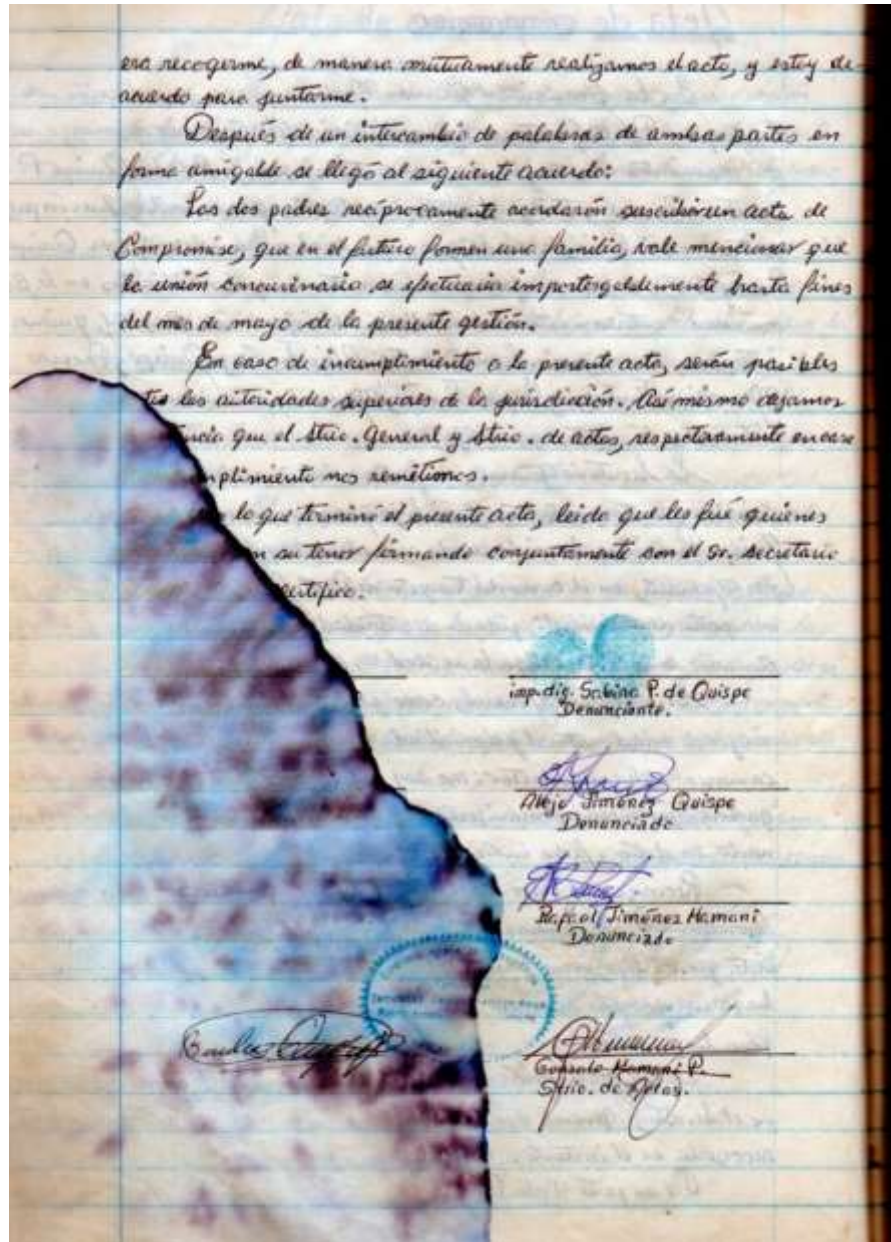 era recogerme, de manera mutuamente realizamos el acto, y estoy de
acuerdo para juntarme.
Después de un intercambio de palabras de ambas partes en
forma amigable se llegó al siguiente acuerdo:
Los dos padres recíprocamente acordarón suscribir un acta de
Compromiso, que en el futuro formen una familia, vale mencionar que
la unión concuvinario se efectuaria impostergablemente hasta fines
del mes de mayo de la presente gestión.
En caso de incumplimiento a la presente acta, serán pasibles
las autoridades superiores de la jurisdicción. Asi mismo dejamos
ncia que el Strio. General y Strio. de actas, respectivamente en caso
mplimiento nos remitimos.
lo que terminó el presente acta, leido que les fué quienes
n su tenor firmando conjuntamente con el Sr. Secretario
certifico.
imp. dig. Sabina P. de Quispe
Denunciante.
Alejo Jimenez Quispe
Denunciado
Rafael Jiménez Mamani
Denunciado
Gonzalo Mamani P.
Strio. de Actas.